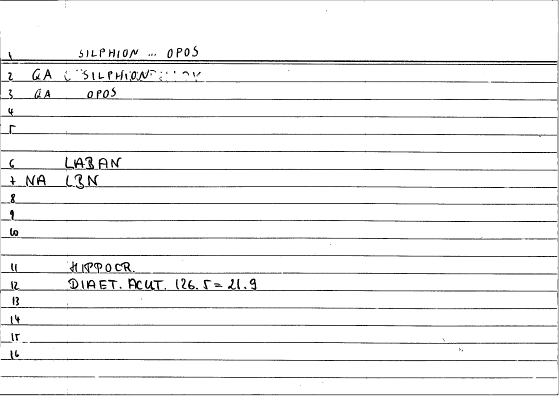 1 SILPHION ... OPOS
2 GA SILPHION
3 GA OPOS
4
5
6 LABAN
7 NA LBN
8
9
10
11 HIPPOCR.
12 DIAET. ACUT. 126.5 = 21.9
13
14
15
16